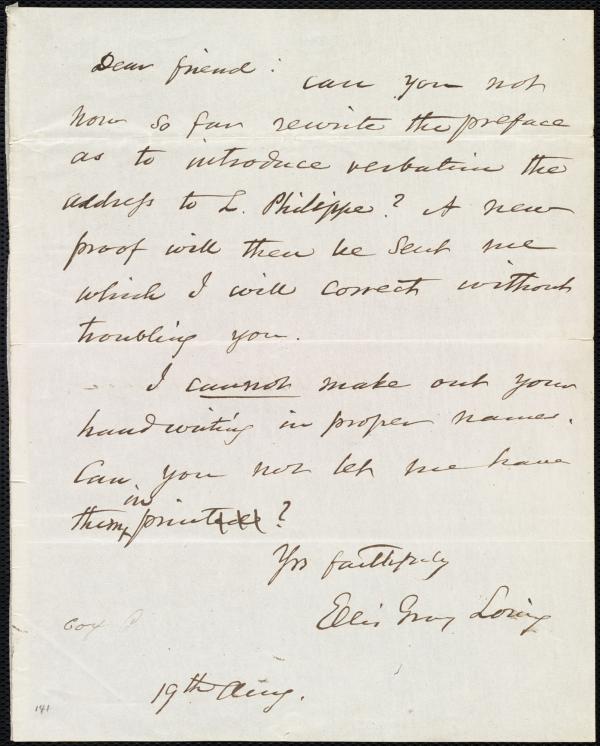 Dear friend: Can you not
now so far rewrite the preface
as to introduce verbatim the
address to L. Philippe? A new
proof will then be sent me
which I will correct without
troubling you.
I cannot make out your
handwriting in proper names.
Can you not let me have
them in print?
Yrs faithfully
Ellis Gray Loring
19th Aug.
141